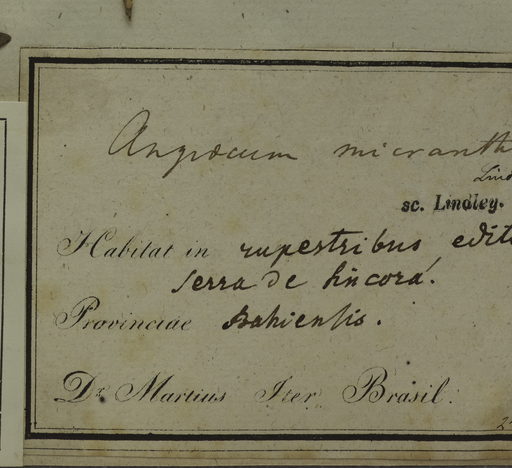 Angræcum micranth
Lind
sc. Lindley.
Habitat in rupestribus edit
Serra de Sincorá.
Provinciae Bahiensis.
Dr. Martius Iter Brasil: